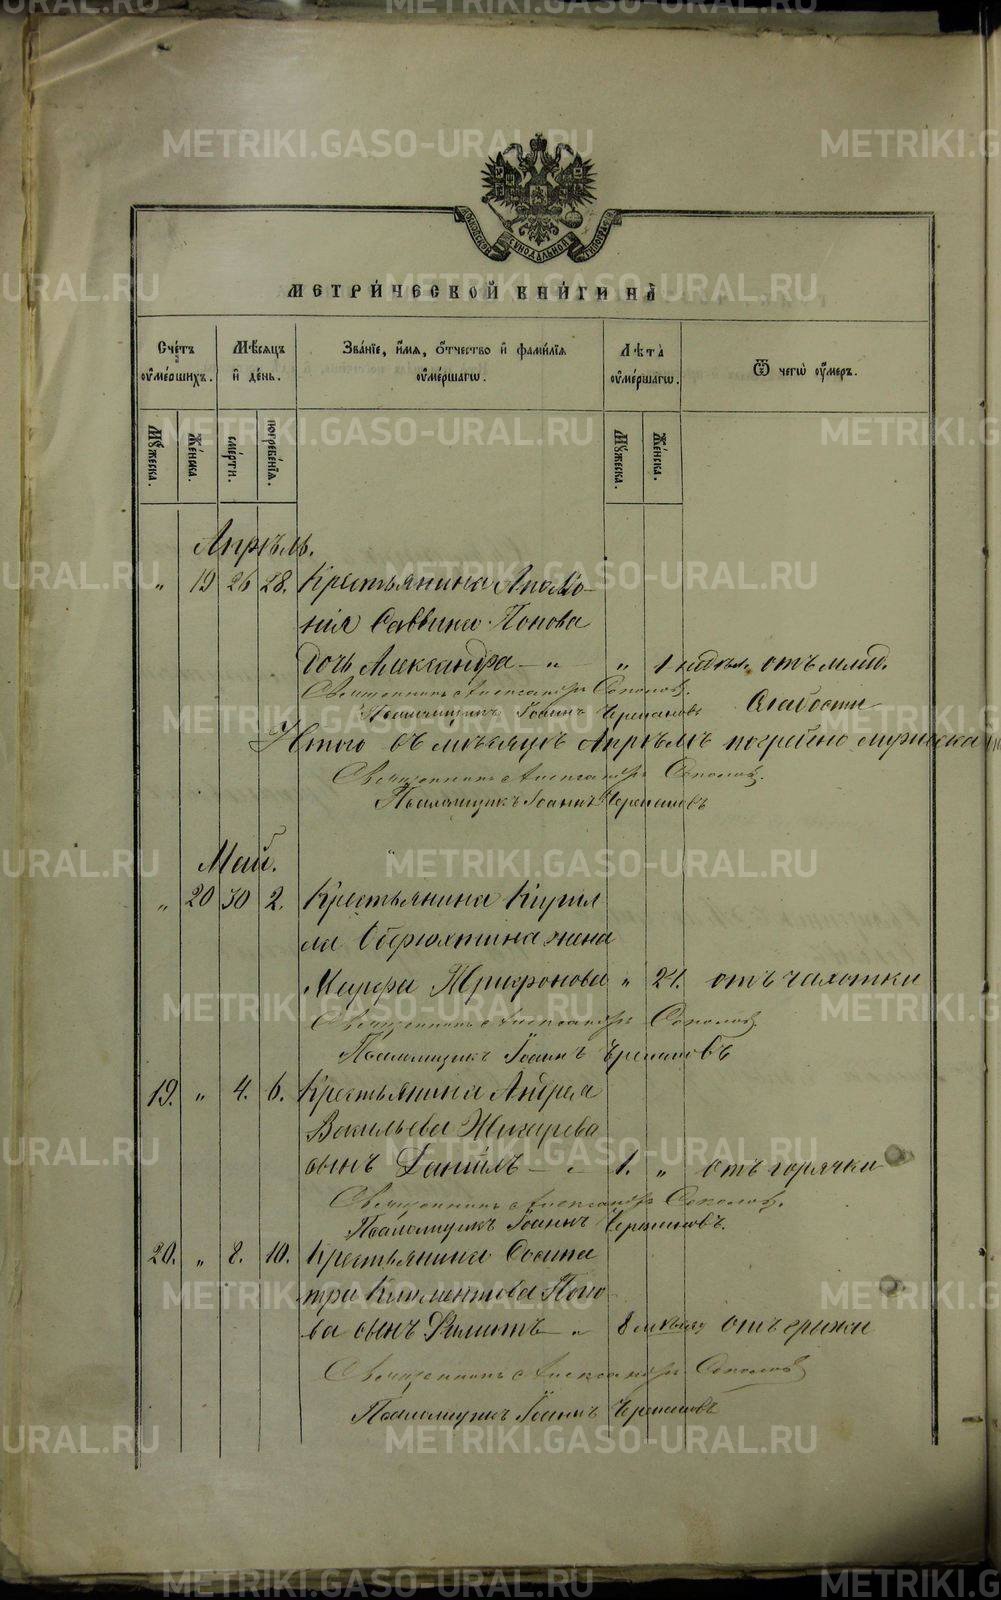 METRIKI.GASO-URAL.RU
МОСКОВСКОЙ СѴНОДАЛЬНОЙ ТИПОГРАФІИ
МЕТРИ́ЧЕСКОЙ КНИ́ГИ НА̀
Сче́тъ оу҆ме́ршихъ.
Мѣ́сяцъ и҆ де́нь.
Зва́нїе, и҆́мѧ, ѻ҆́тчество и҆ фами́лїѧ оу҆ме́ршагѡ.
Лѣ́та оу҆ме́ршагѡ.
Ѿ чегѡ̀ оу҆́меръ.
Мꙋ́жеска.
Же́нска.
сме́рти.
погребе́нїѧ.
Мꙋ́жеска.
Же́нска.
Апрѣль.
„ 19 26 28. Крестьянина Аполло-
нія Саввина Попова
дочь Александра — „ „ 1 недѣл. отъ млад.
Священникъ Александръ Соколовъ. слабости
Псаломщикъ Іоаннъ Черепановъ
Итого въ мѣсяцѣ Апрѣлѣ погребено мужеска
Священникъ Александръ Соколовъ.
Псаломщикъ Іоаннъ Черепановъ
Май.
„ 20 30 2. Крестьянина Кирил
ла Обрюхтина жена
Марфа Трифонова „ 24. отъ чахотки
Священникъ Александръ Соколовъ
Псаломщикъ Іоаннъ Черепановъ
19. „ 4. 6. Крестьянина Андрея
Васильева Жихарева
сынъ Даніилъ — „ 1. „ отъ горячки
Священникъ Александръ Соколовъ.
Псаломщикъ Іоаннъ Черепановъ.
20. „ 8. 10. Крестьянина Сосипа
тра Климентова Попо
ва сынъ Филиппъ — „ 8 мѣсяц отъ грыжи
Священникъ Александръ Соколовъ
Псаломщикъ Іоаннъ Черепановъ